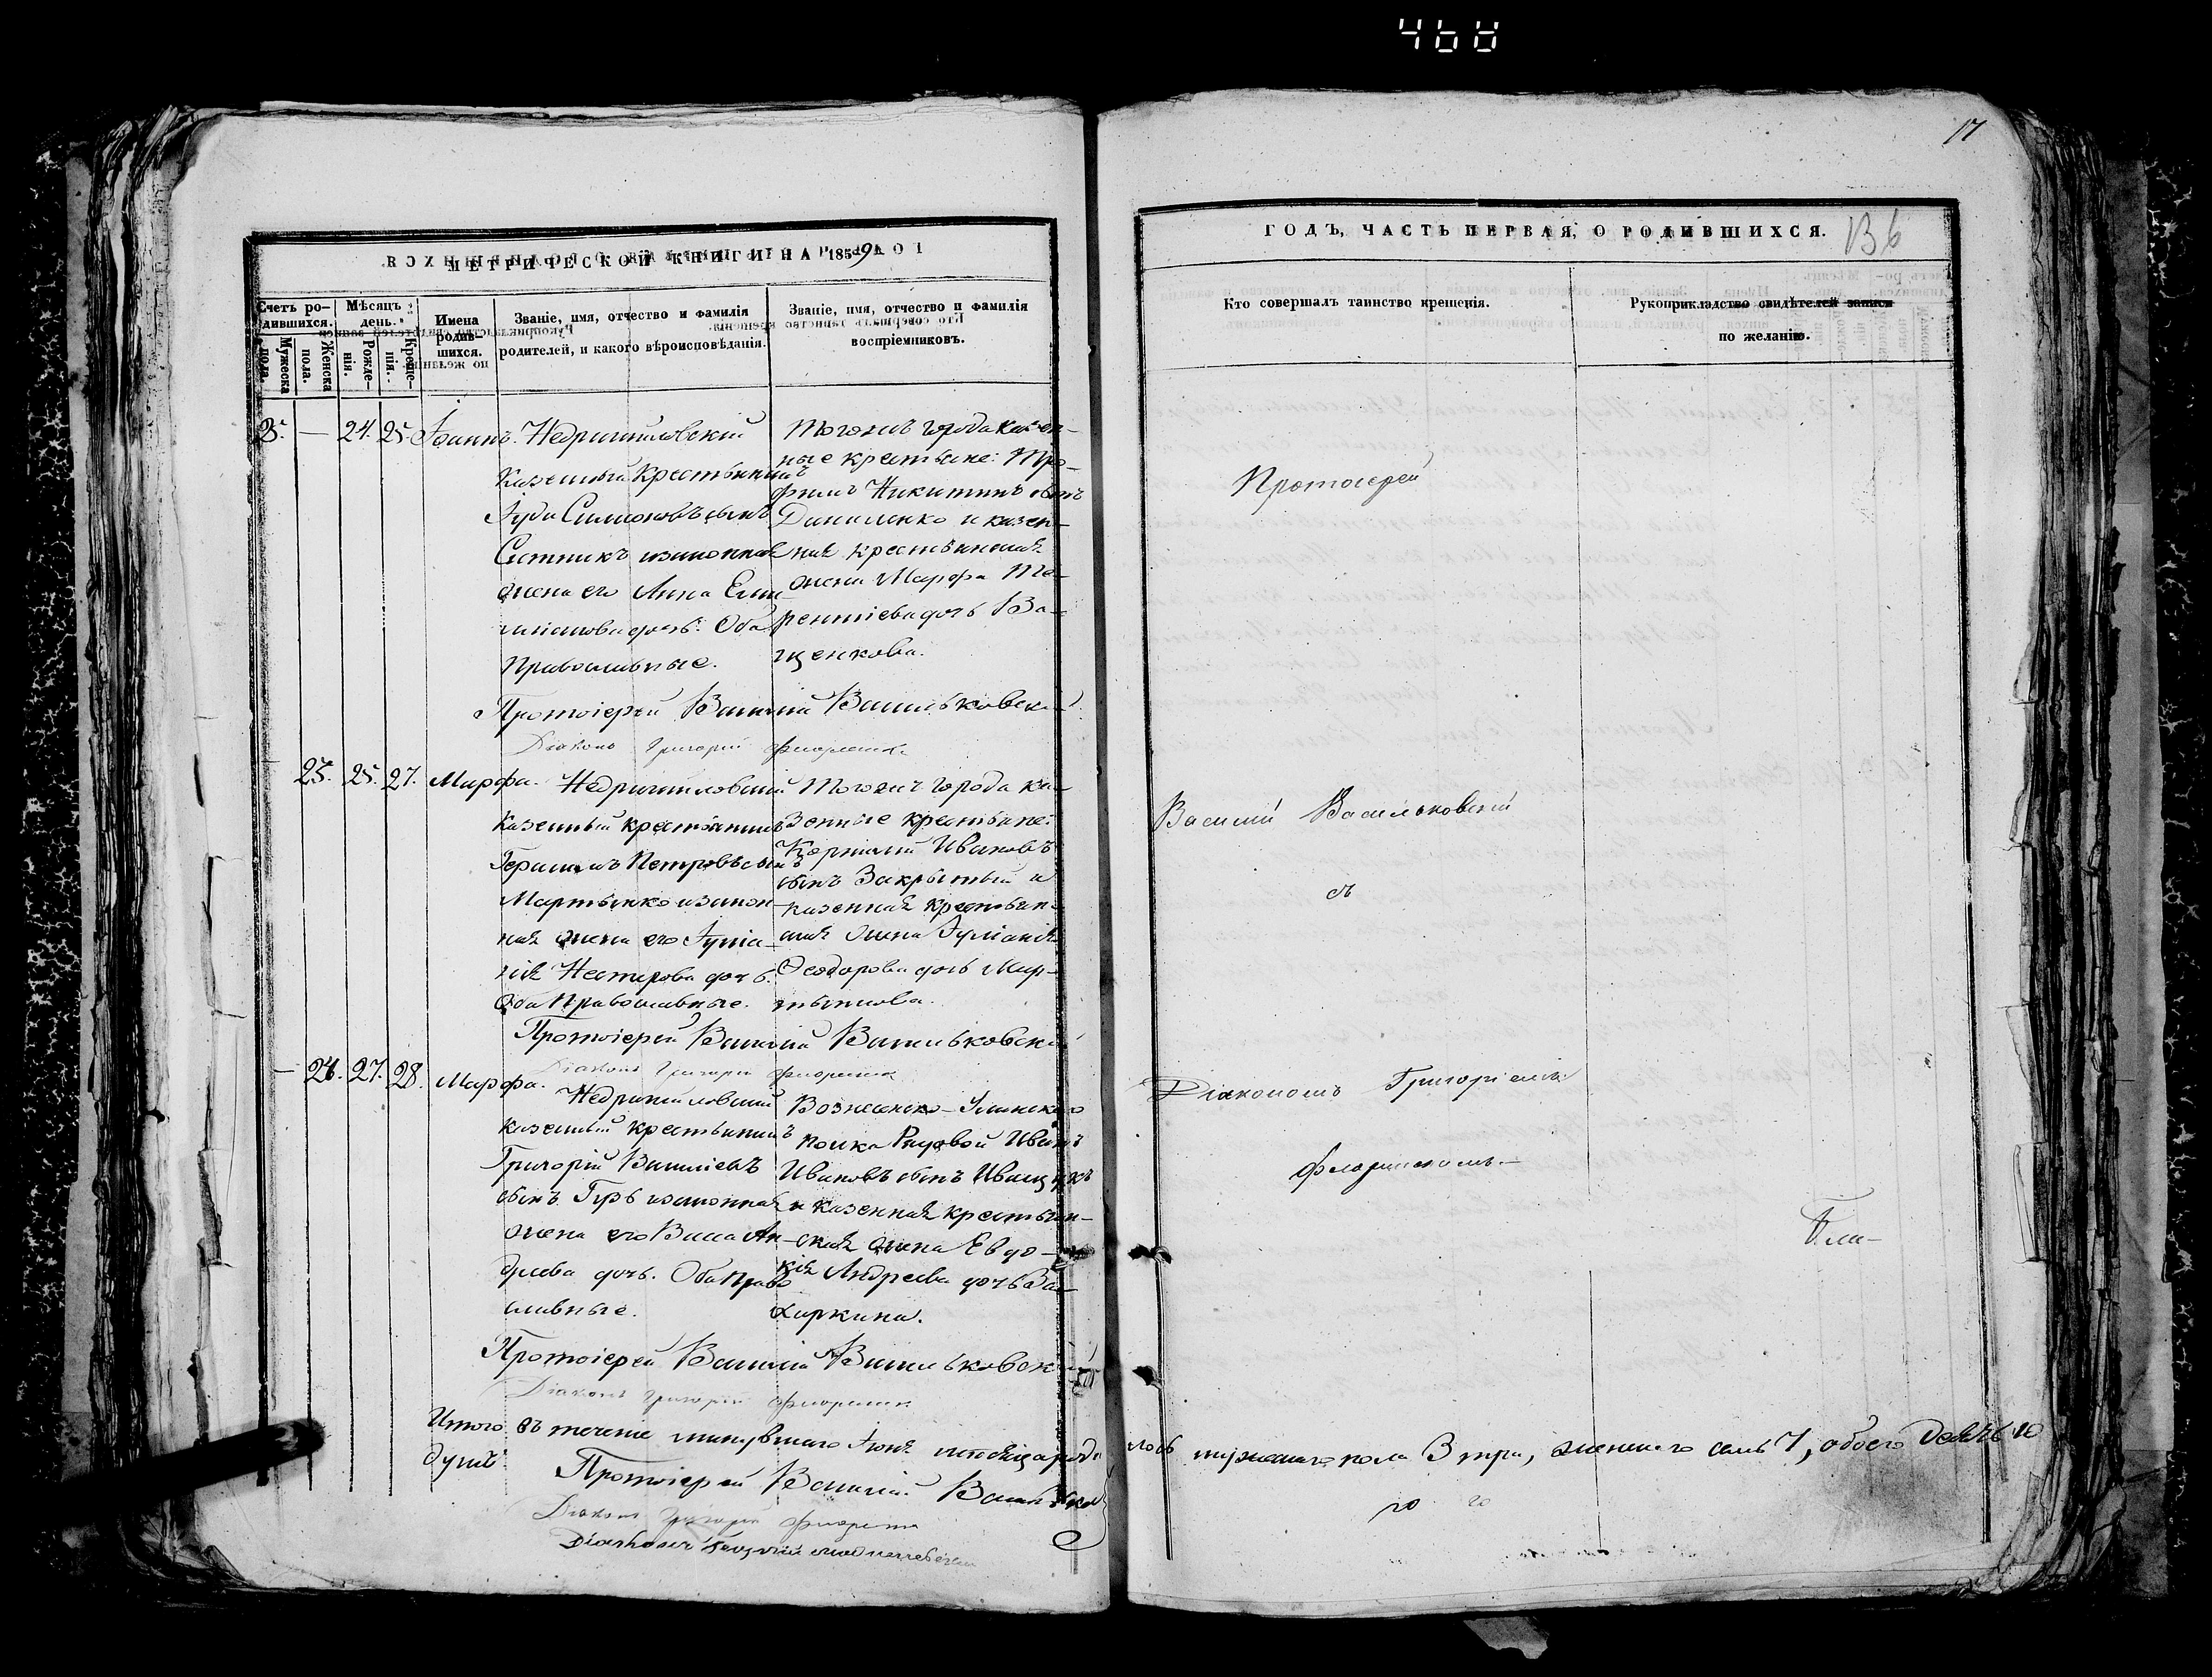 468
17
МЕТРИЧЕСКОЙ КНИГИ НА 1859
ГОДЪ, ЧАСТЬ ПЕРВАЯ, О РОДИВШИХСЯ.
Счетъ ро-
дившихся.
Мужеска
пола.
Женска
пола.
Мѣсяцъ и
день.
Рожде-
нія.
Креще-
нія.
Имена
родив-
шихся.
Званіе, имя, отчество и фамилія
родителей, и какого вѣроисповѣданія.
Званіе, имя, отчество и фамилія
воспріемниковъ.
Кто совершалъ таинство крещенія.
Рукоприкладство свидѣтелей записи
по желанію.
24. 25. Іоаннъ.
Недригайловскій
Казенный Крестьянинъ
Іуда Симоновъ сынъ
Ситникъ изаконная
жена его Анна Еми
ліанова дочь. Оба
Православные.
Тогожъ города казен-
ные крестьяне: Тро-
фимъ Никитинъ сынъ
Даниленко и казен-
ная крестьянская
жена Марфа Те-
рентіева дочь Ва-
щенкова.
Протоіерей Василій Васильковскій
Діаконъ Григорій
23. 25. 27. Марфа.
Недригайловскій
Казенный крестьянинъ
Герасимъ Петровъ сынъ
Мартыненко изакон-
ная жена его Іуліа-
нія Нестерова дочь.
Оба Православные.
Тогожъ города ка-
зенные крестьяне:
Корнилій Ивановъ
сынъ Закрытный и
казенная крестьян-
ская жена Іуліанія
Ѳеодорова дочь Мар-
тынова.
Протоіерей Василій Васильковскій
Діаконъ Григорій
24. 27. 28. Марфа.
Недригайловскій
казенный крестьянинъ
Григорій Василіевъ
сынъ Гирь изаконная
жена его Васса Ан-
дреева дочь. Оба Право
славные.
Вознесенско-Уланскаго
полка Рядовой Иванъ
Ивановъ сынъ
и казенная крестьян-
ская жена Евдо-
кія Андреева дочь За-
харкина.
Протоіерей Василій Васильковскій
Діаконъ Григорій
Итого въ теченіе минувшаго Іюня мѣсяца роди
лось мужескаго пола 3 три, женскаго семь 7, обоего
душъ
Протоіерей Василій
Діаконъ Григорій
Протоіерей
Василій Васильковскій
съ
Діакономъ Григоріемъ